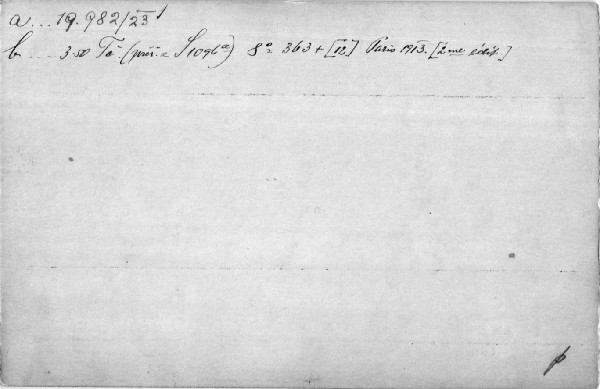 a... 19.982/23
b..... 3.50 Tá (přiv. a S 1096a) 8° 363 + [12] Paris 1913. [2me édit.]
p